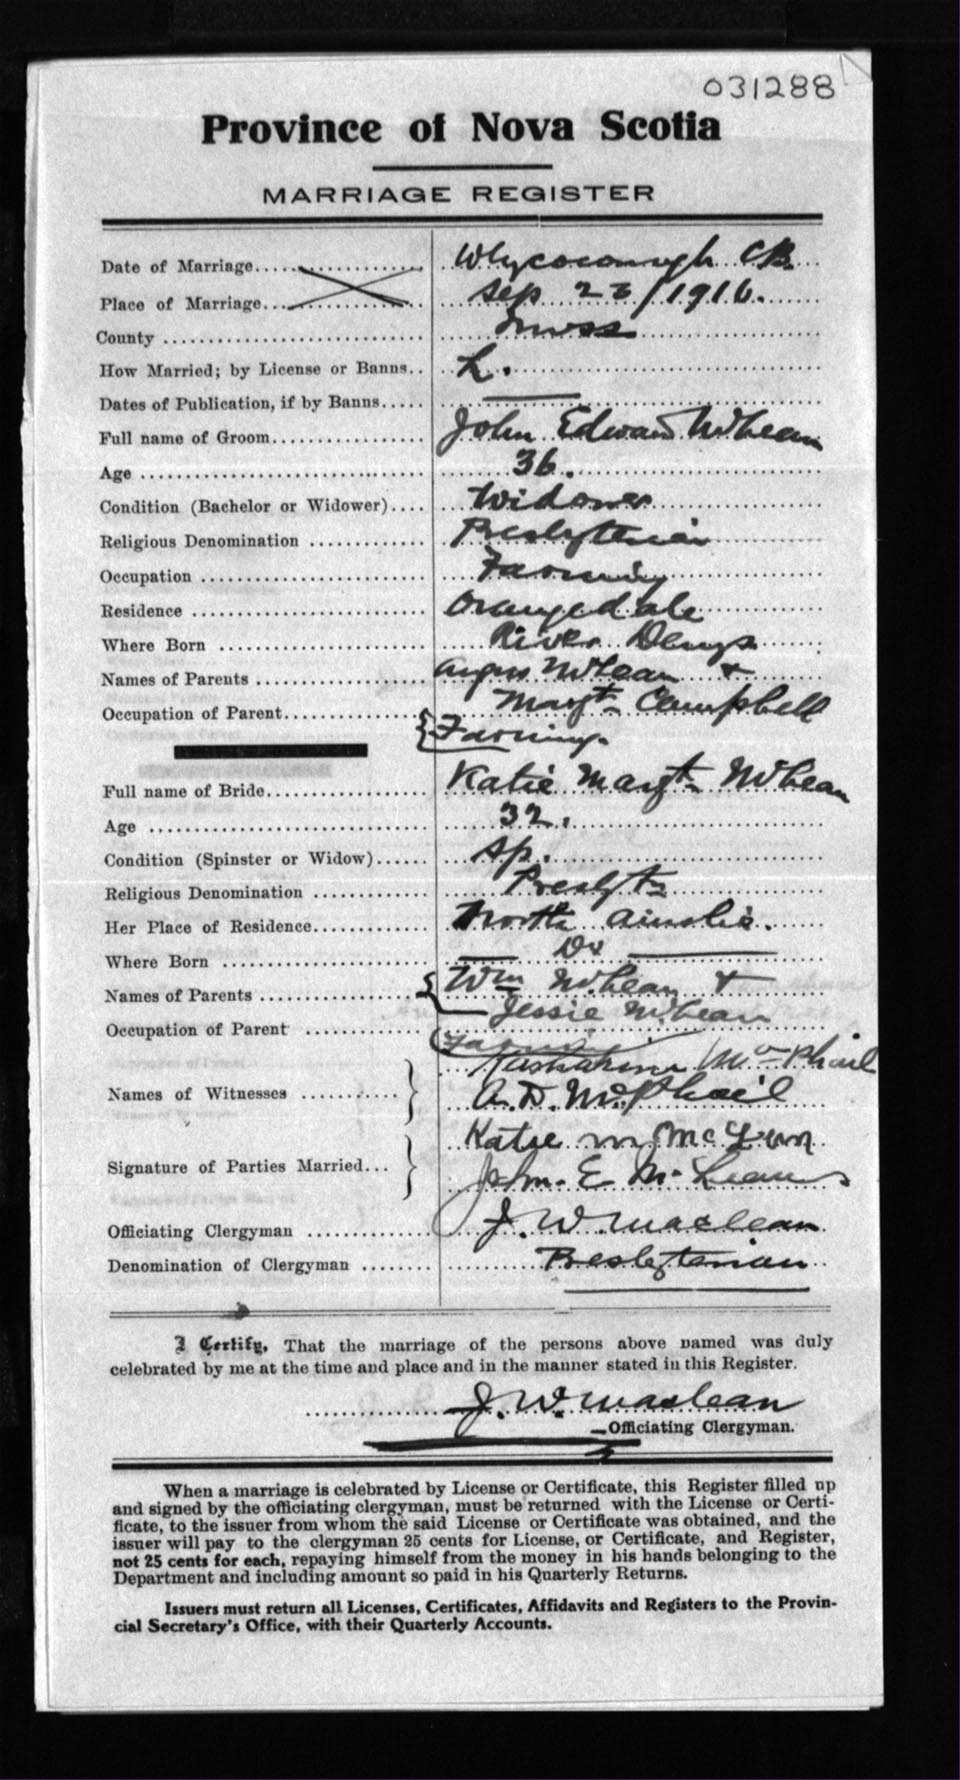 031288
Province of Nova Scotia
MARRIAGE REGISTER
Date of Marriage Whycocomagh C.B.
Place of Marriage Sep /1916.
County Inverness
How Married; by License or Banns.. L.
Dates of Publication, if by Banns..... ——
Full name of Groom John Edward McLean
Age 36.
Condition (Bachelor or Widower).... Widower
Religious Denomination Presbyterian
Occupation Farming
Residence Orangedale
Where Born River Denys
Names of Parents Angus McLean +
Margt Campbell
Occupation of Parent { Farming.
Full name of Bride Katie Margt McLean
Age 32.
Condition (Spinster or Widow)...... Sp.
Religious Denomination Presbyt
Her Place of Residence North Ainslie.
Where Born — Do —
Names of Parents { Wm McLean +
Jessie McLean
Occupation of Parent Farming
McPhail
Names of Witnesses } A. D. McPhail
Katie M
Signature of Parties Married... } John. E McLean
Officiating Clergyman J. W. Maclean
Denomination of Clergyman Presbyterian
I Certify, That the marriage of the persons above named was duly
celebrated by me at the time and place and in the manner stated in this Register.
J. W. Maclean
Officiating Clergyman.
When a marriage is celebrated by License or Certificate, this Register filled up
and signed by the officiating clergyman, must be returned with the License or Certi-
ficate, to the issuer from whom the said License or Certificate was obtained, and the
issuer will pay to the clergyman 25 cents for License, or Certificate, and Register,
not 25 cents for each, repaying himself from the money in his hands belonging to the
Department and including amount so paid in his Quarterly Returns.
Issuers must return all Licenses, Certificates, Affidavits and Registers to the Provin-
cial Secretary's Office, with their Quarterly Accounts.